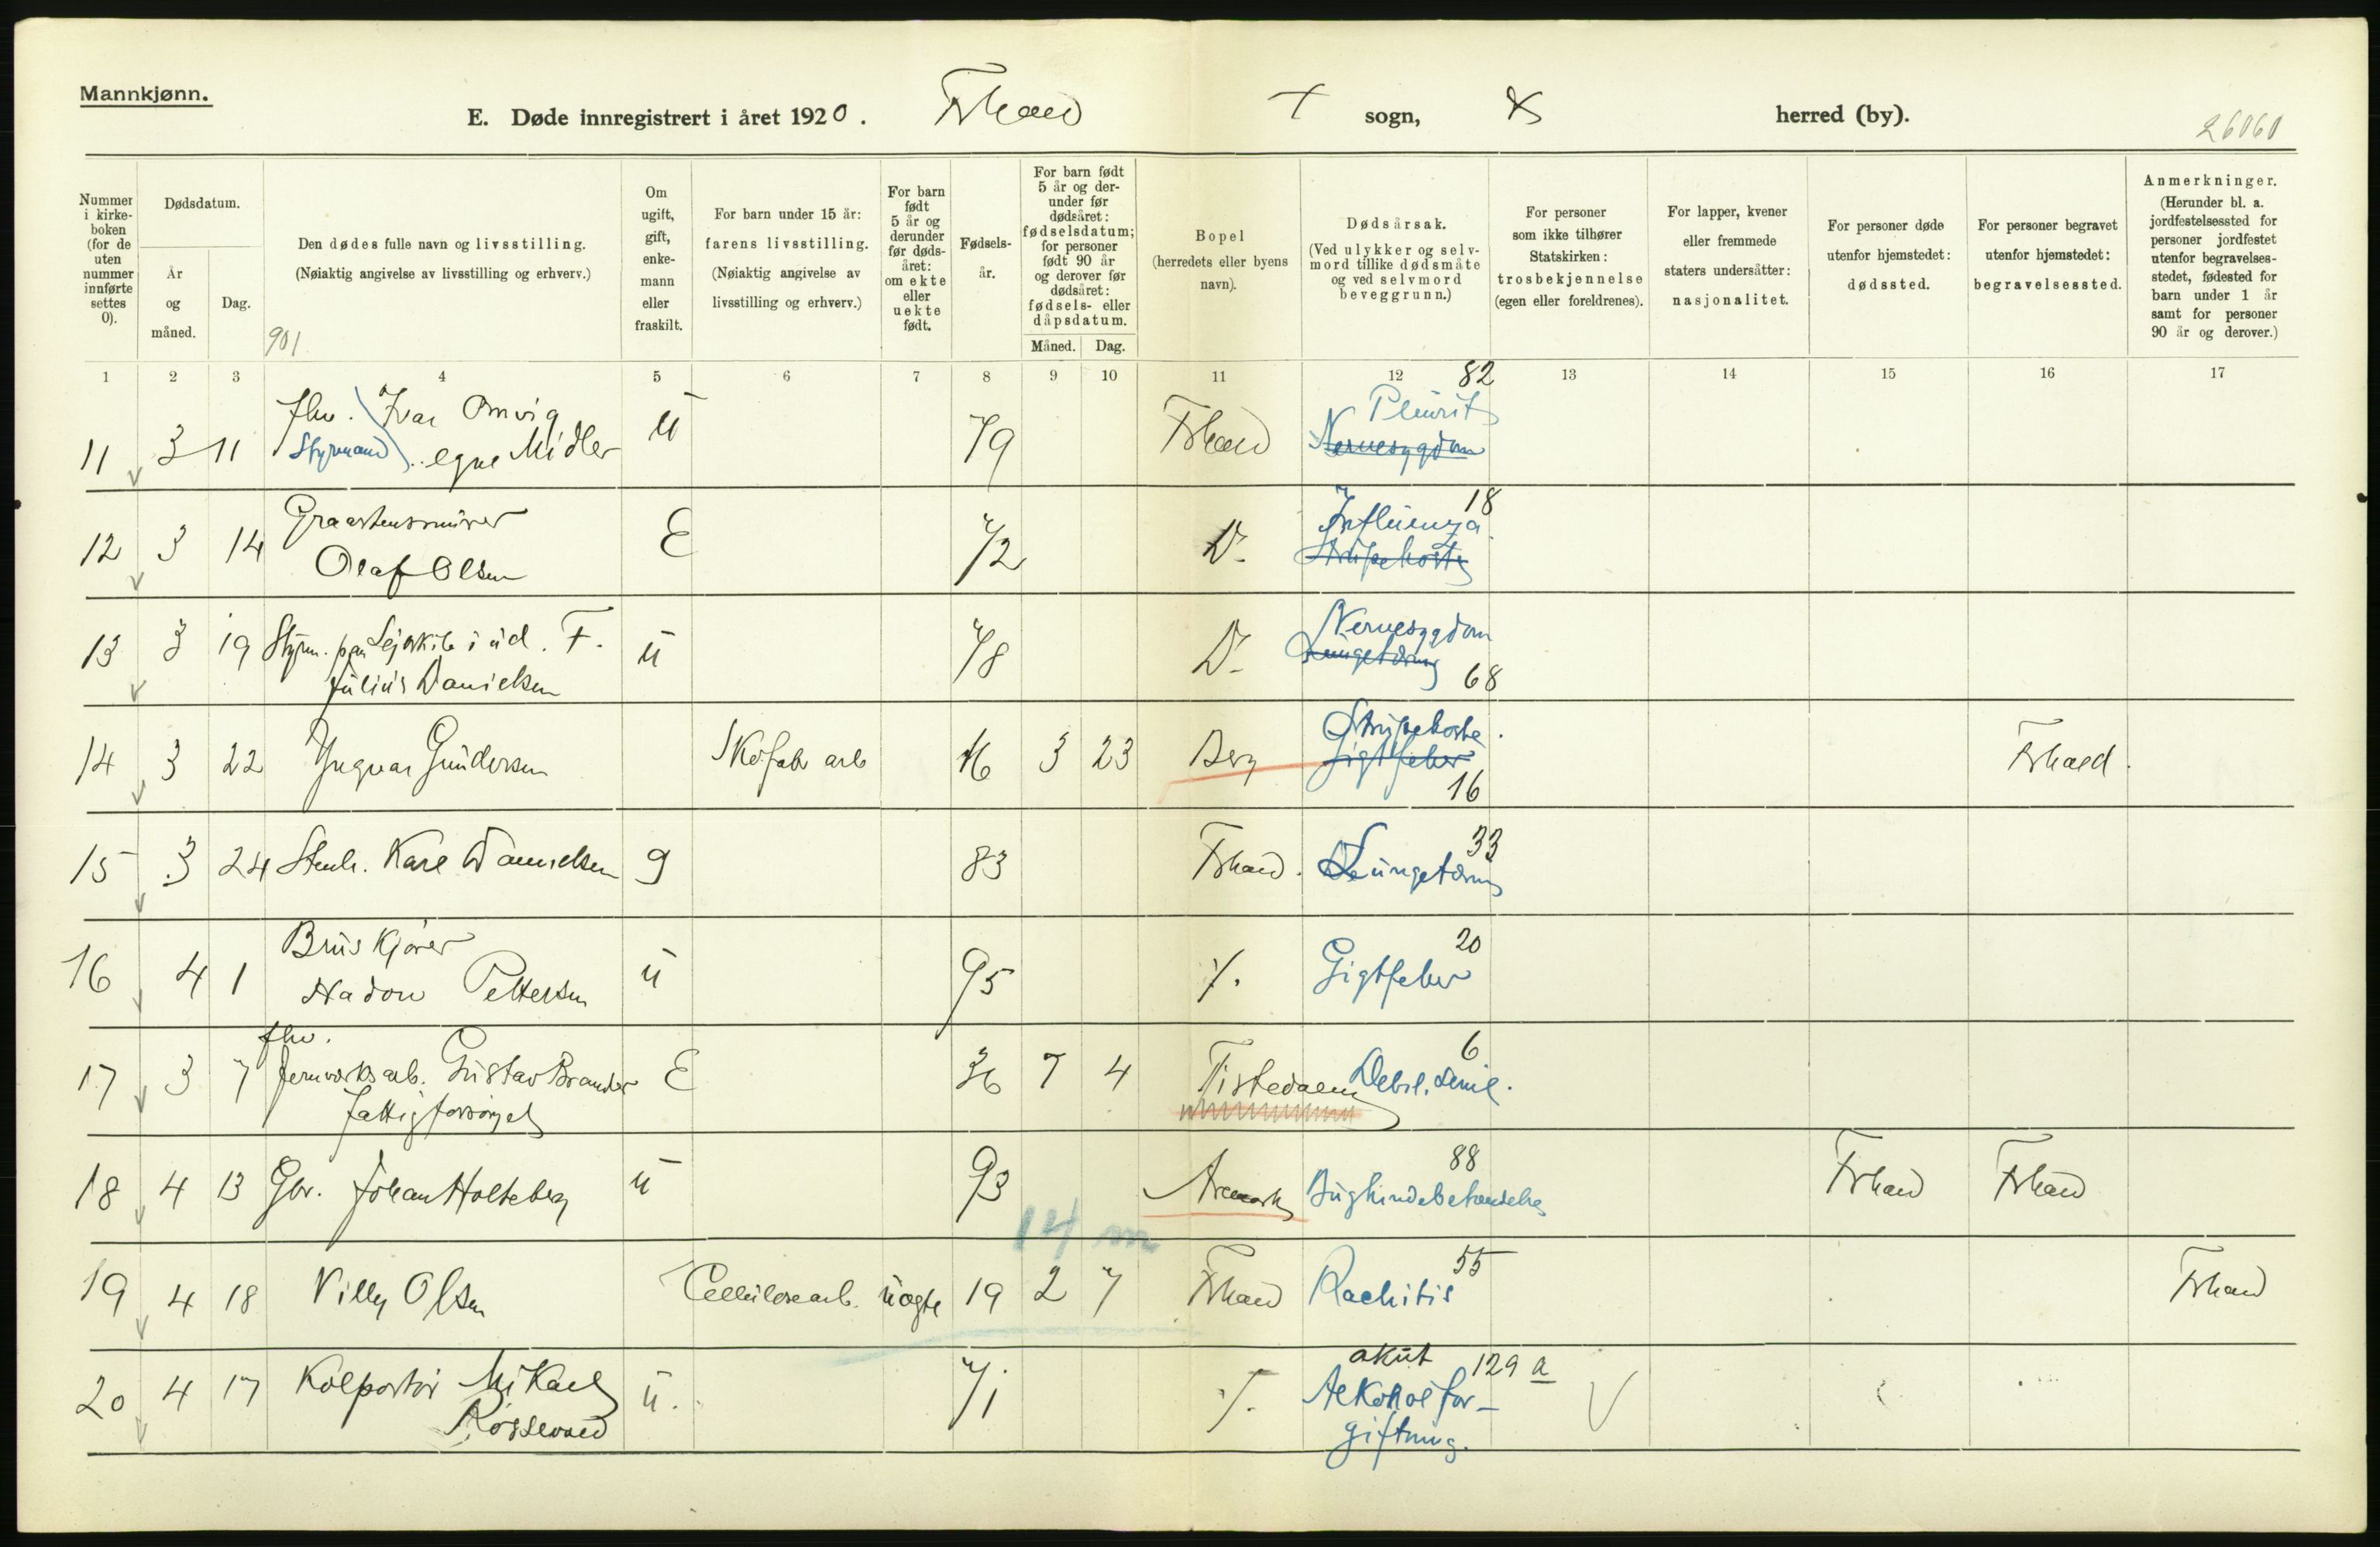 Mannkjønn.
E. Døde innregistrert i året 1920. Fhald + sogn, herred (by).
26060
Nummer i kirkeboken (for de uten nummer innførte settes 0).
Dødsdatum.
År og måned.
Dag.
Den dødes fulle navn og livsstilling.
(Nøiaktig angivelse av livsstilling og erhverv.)
901
Om ugift, gift, enkemann eller fraskilt.
For barn under 15 år: farens livsstilling.
(Nøiaktig angivelse av livsstilling og erhverv.)
For barn født 5 år og derunder før dødsåret: om ekte eller uekte født.
Fødselsår.
For barn født 5 år og derunder før dødsåret: fødselsdatum; for personer født 90 år og derover før dødsåret: fødsels- eller dåpsdatum.
Måned. Dag.
Bopel
(herredets eller byens navn).
Dødsårsak.
(Ved ulykker og selvmord tillike dødsmåte og ved selvmord beveggrunn.)
For personer som ikke tilhører Statskirken: trosbekjennelse (egen eller foreldrenes).
For lapper, kvener eller fremmede staters undersåtter: nasjonalitet.
For personer døde utenfor hjemstedet: dødssted.
For personer begravet utenfor hjemstedet: begravelsessted.
Anmerkninger.
(Herunder bl. a. jordfestelsessted for personer jordfestet utenfor begravelsesstedet, fødested for barn under 1 år samt for personer 90 år og derover.)
1 2 3 4 5 6 7 8 9 10 11 12 13 14 15 16 17
11 3 11 fhv. Ivar Omvig ü 79 Fhald Pleurit 82
Styrmand egne Midler Nervesygdom
12 3 14 Graastensmurer E 72 Do Influenza 18
Olaf Olsen Strupehoste
13 3 19 Styrm. paa Sejlskib i ud. F. ü 78 Do Nervesygdom
Julius Danielsen Lungetæring 68
14 3 22 Yngvar Gundersen Skofab arb 16 3 23 Berg Strupehoste. Fhald.
Gigtfeber 16
15 3 24 Stenh. Karl Danielsen g 83 Fhald. Lungetæring 33
16 4 1 Bruskjører ü 95 Gigtfeber 20
Hadon Pettersen
17 3 7 fhv. Jernverksarb. Gustav Brander E 36 7 4 Tistedalen Debil. senil. 6
fattigforsørget
18 4 13 Gbr. Johan Holteberg ü 93 Aremark Bughindebetændelse 88 Fhald Fhald
14 m
19 4 18 Villy Olsen Cellulosearb. uægte 19 2 7 Fhald Rachitis 55 Fhald
20 4 17 Kolportør Mikael ü. 71 akut 129 a
Røsselvand Alkoholfor-
giftning.